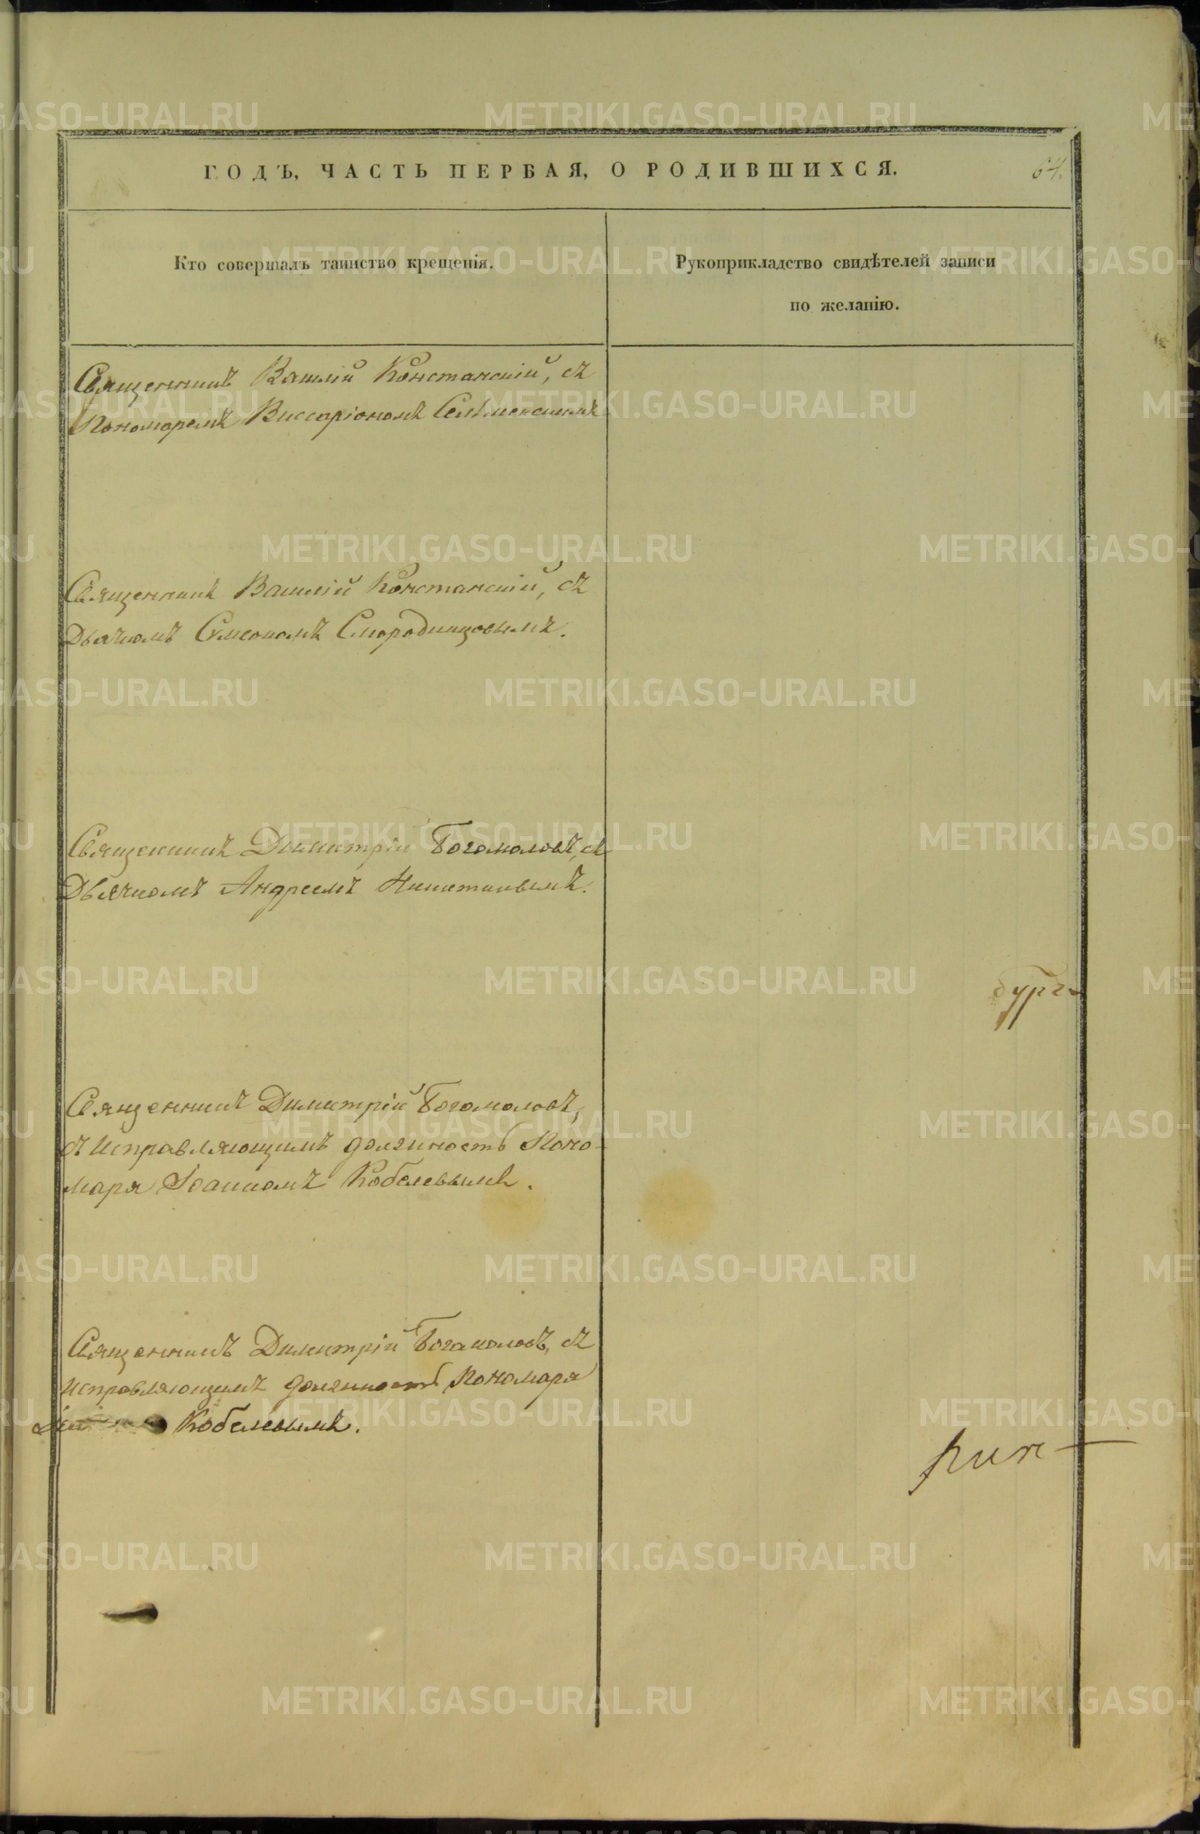 ГОДЪ, ЧАСТЬ ПЕРВАЯ, О РОДИВШИХСЯ.
64.
Кто совершалъ таинство крещенія.
Рукоприкладство свидѣтелей записи
по желанію.
Священникъ Василій Констанскій, съ
Пономаремъ Виссаріономъ
Священникъ Василій Констанскій, съ
Дьячкомъ Симеономъ Смородинцовымъ.
Священникъ Димитрій Богомоловъ, съ
Дьячкомъ Андреемъ Никитинымъ.
Священникъ Димитрій Богомоловъ,
съ исправляющимъ должность Поно-
маря Іоанномъ Кобелевымъ.
Священникъ Димитрій Богомоловъ, съ
исправляющимъ должность Пономаря
Кобелевымъ.
METRIKI.GASO-URAL.RU